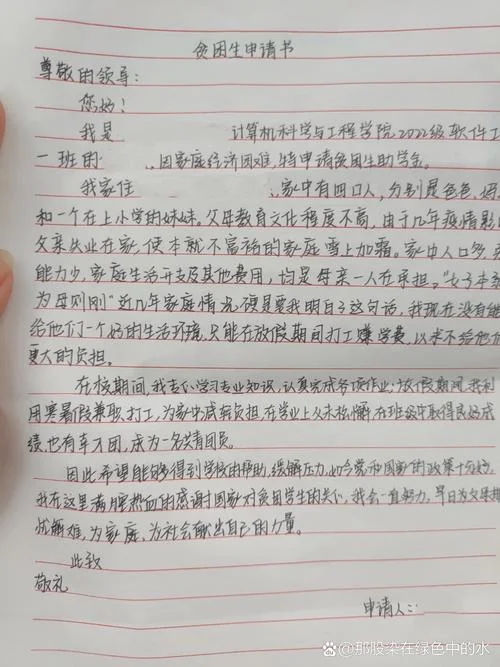 贫困生申请书
尊敬的领导：
您好！
我是 计算机科学与工程学院2022级软件工
一班的 ，因家庭经济困难，特申请贫困生助学金。
我家住 ，家中有四口人，分别是爸爸、妈
和一个在上小学的妹妹。父母教育文化程度不高，由于几年疫情影
父亲失业在家，使本就不富裕的家庭雪上加霜。家中人口多，
能力少，家庭生活开支及其他费用，均是母亲一人在承担。“女子本
为母则刚”近几年家庭情况 更是要我明白了这句话，我现在没有能
给他们一个好的生活环境，只能在放假期间打工赚学费，以来不给他们
更大的负担。
在校期间，我专心学习专业知识，认真完成各项作业；放假期间，我利
用寒暑假兼职打工，为家中减轻负担，在学业上从未松懈，在班级中取得良好成
绩，也有幸入团，成为一名共青团员。
因此希望能够得到学校的帮助，缓解压力，如今党和国家的政策十分好，
我在这里满腔热血的感谢国家对贫困学生的关心，我会一直努力，早日为父母排
忧解难，为家庭、为社会献出自己的力量。
此致
敬礼
申请人：
@那股染在绿色中的水